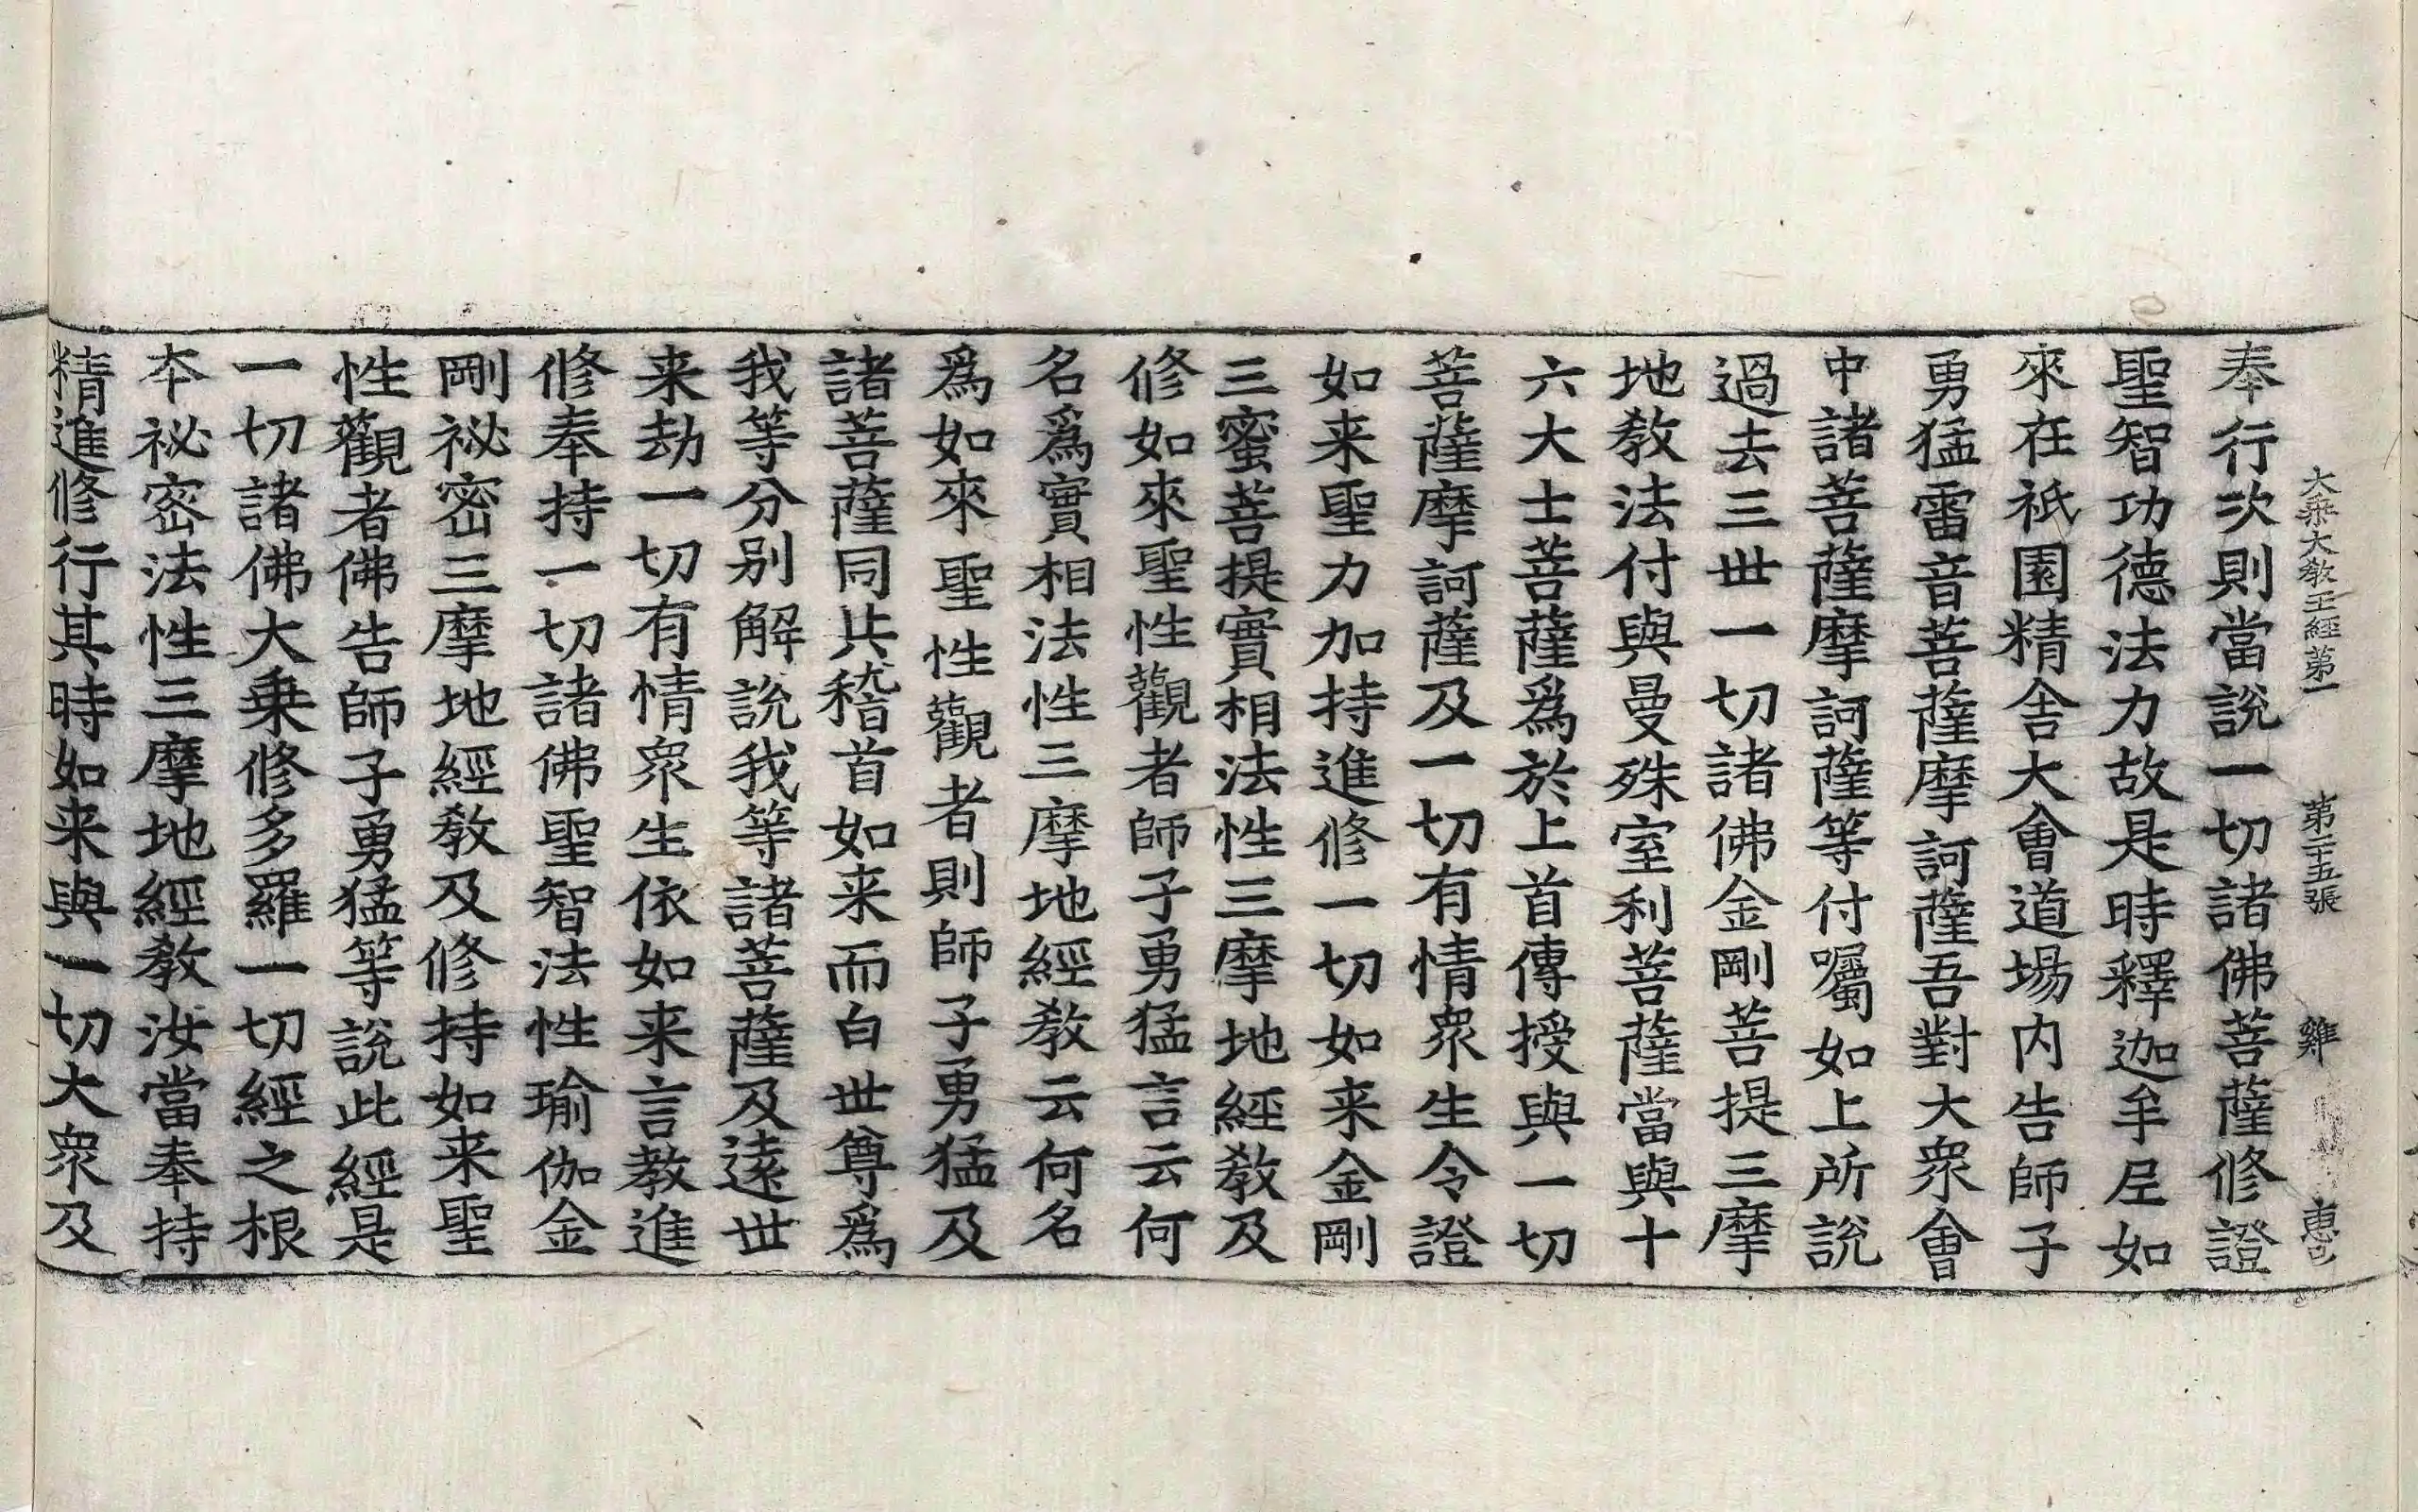 大乘大教王經第一 第二十五張 雞 惠已
奉行次則當說一切諸佛菩薩修證
聖智功德法力故是時釋迦牟尼如
來在祇園精舍大會道場内告師子
勇猛雷音菩薩摩訶薩吾對大衆會
中諸菩薩摩訶薩等付囑如上所說
過去三世一切諸佛金剛菩提三摩
地教法付與曼殊室利菩薩當與十
六大士菩薩爲於上首傳授與一切
菩薩摩訶薩及一切有情衆生令證
如来聖力加持進修一切如来金剛
三蜜菩提實相法性三摩地經教及
修如來聖性觀者師子勇猛言云何
名爲實相法性三摩地經教云何名
爲如來聖性觀者則師子勇猛及
諸菩薩同共稽首如来而白世尊爲
我等分别解說我等諸菩薩及遠世
来劫一切有情衆生依如来言教進
修奉持一切諸佛聖智法性瑜伽金
剛祕密三摩地經教及修持如来聖
性觀者佛告師子勇猛等說此經是
一切諸佛大乗修多羅一切經之根
夲祕密法性三摩地經教汝當奉持
精進修行其時如来與一切大衆及